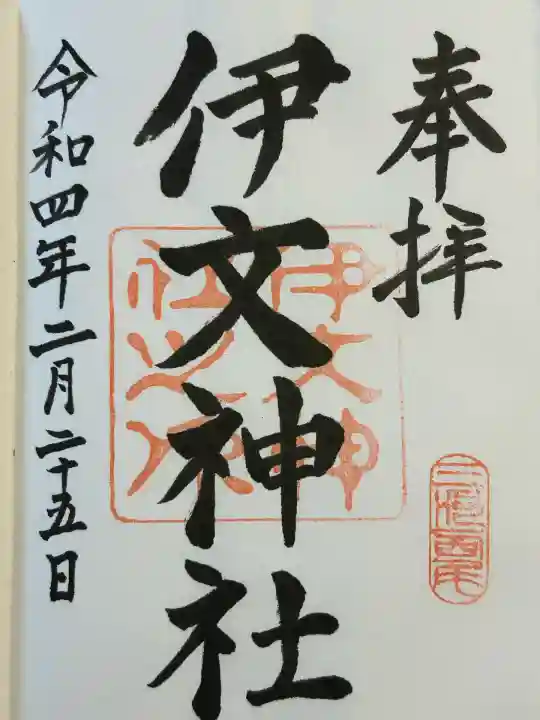 奉拝
三河西尾
伊文神社
伊文神社之印
令和四年二月二十五日